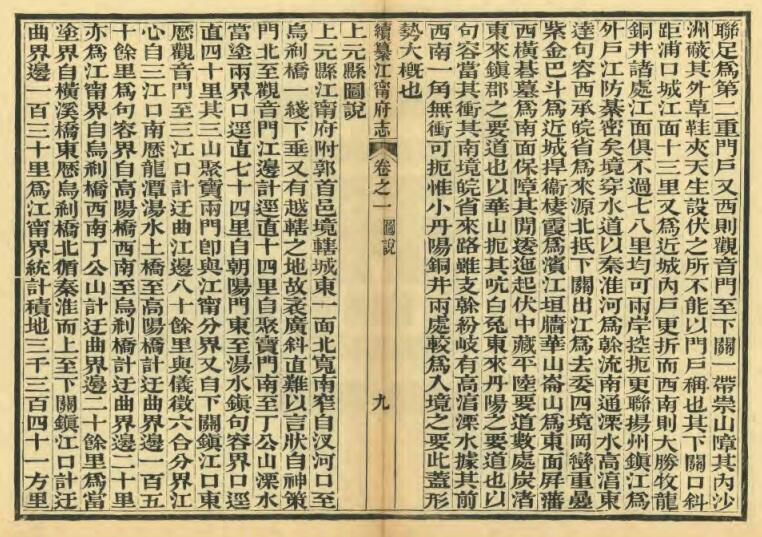 聯足爲第二重門戶又西則觀音門至下關一帶崇山障其內沙
洲蔽其外草鞋夾天生設伏之所不能以門戶稱也其下關口斜
距浦口城江面十三里又爲近城內戶更折而西南則大勝牧龍
銅井諸處江面俱不過七八里均可兩岸控扼更聯揚州鎮江爲
外戶江防綦密矣境穿水道以秦淮河爲幹流南通溧水高淯東
達句容西承皖省爲來源北抵下關出江爲去委四境岡巒重曡
紫金巴斗爲近城捍衞棲霞爲濱江垣牆華山崙山爲東面屏藩
西橫碁墓爲南面保障其閒逶迤起伏中藏平陸要道數處炭渚
東來鎮郡之要道也以華山扼其吭白兔東來丹陽之要道也以
句容當其衝其南境皖省來路雖支幹紛岐有高淯溧水據其前
西南一角無衝可扼惟小丹陽銅井兩處較爲入境之要此蓋形
勢大槪也
續纂江甯府志
卷之一 圖說
九
上元縣圖說
上元縣江甯府附郭首邑境轄城東一面北寬南窄自汊河口至
烏刹橋一綫下垂又有越轄之地故袤廣斜直難以言狀自神策
門北至觀音門江邊計徑直十四里自聚寶門南至丁公山溧水
當塗兩界口徑直七十四里自朝陽門東至湯水鎮句容界口徑
直四十里其三山聚寶兩門卽與江甯分界又自下關鎮江口東
歷觀音門至三江口計迂曲江邊八十餘里與儀徵六合分界江
心自三江口南歷龍潭湯水土橋至高陽橋計迂曲界邊一百五
十餘里爲句容界自高陽橋西南至烏刹橋計迂曲界邊二十里
亦爲江甯界自烏刹橋西南丁公山計迂曲界邊二十餘里爲當
塗界自橫溪橋東歷烏刹橋北循秦淮而上至下關鎮江口計迂
曲界邊一百三十里爲江甯界統計積地三千三百四十一方里